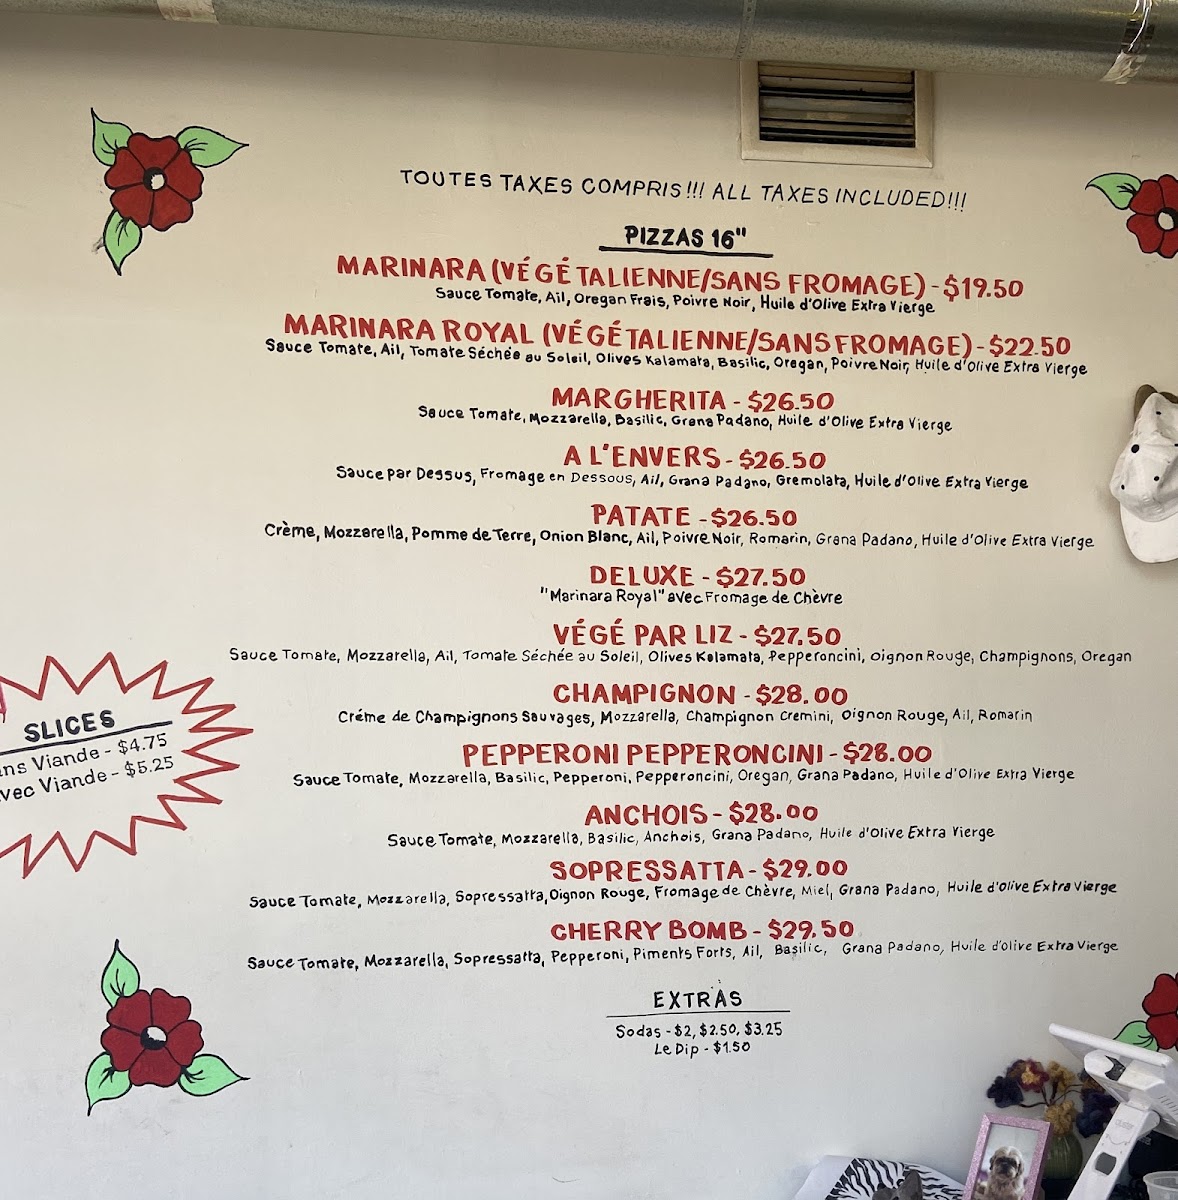 TOUTES TAXES COMPRIS!!! ALL TAXES INCLUDED!!!
PIZZAS 16"
MARINARA (VÉGÉTALIENNE/SANS FROMAGE) - $19.50
Sauce Tomate, Ail, Oregan Frais, Poivre Noir, Huile d'Olive Extra Vierge
MARINARA ROYAL (VÉGÉTALIENNE/SANS FROMAGE) - $22.50
Sauce Tomate, Ail, Tomate Séchée au Soleil, Olives Kalamata, Basilic, Oregan, Poivre Noir, Huile d'Olive Extra Vierge
MARGHERITA - $26.50
Sauce Tomate, Mozzarella, Basilic, Grana Padano, Huile d'Olive Extra Vierge
A L'ENVERS - $26.50
Sauce par Dessus, Fromage en Dessous, Ail, Grana Padano, Gremolata, Huile d'Olive Extra Vierge
PATATE - $26.50
Crème, Mozzarella, Pomme de Terre, Onion Blanc, Ail, Poivre Noir, Romarin, Grana Padano, Huile d'Olive Extra Vierge
DELUXE - $27.50
"Marinara Royal" avec Fromage de Chèvre
VÉGÉ PAR LIZ - $27.50
Sauce Tomate, Mozzarella, Ail, Tomate Séchée au Soleil, Olives Kalamata, Pepperoncini, Oignon Rouge, Champignons, Oregan
CHAMPIGNON - $28.00
Créme de Champignons Sauvages, Mozzarella, Champignon Cremini, Oignon Rouge, Ail, Romarin
PEPPERONI PEPPERONCINI - $28.00
Sauce Tomate, Mozzarella, Basilic, Pepperoni, Pepperoncini, Oregan, Grana Padano, Huile d'Olive Extra Vierge
ANCHOIS - $28.00
Sauce Tomate, Mozzarella, Basilic, Anchois, Grana Padano, Huile d'Olive Extra Vierge
SOPRESSATTA - $29.00
Sauce Tomate, Mozzarella, Sopressatta, Oignon Rouge, Fromage de Chèvre, Miel, Grana Padano, Huile d'Olive Extra Vierge
CHERRY BOMB - $29.50
Sauce Tomate, Mozzarella, Sopressatta, Pepperoni, Piments Forts, Ail, Basilic, Grana Padano, Huile d'olive Extra Vierge
EXTRAS
Sodas - $2, $2.50, $3.25
Le Dip - $1.50
SLICES
ns Viande - $4.75
vec Viande - $5.25